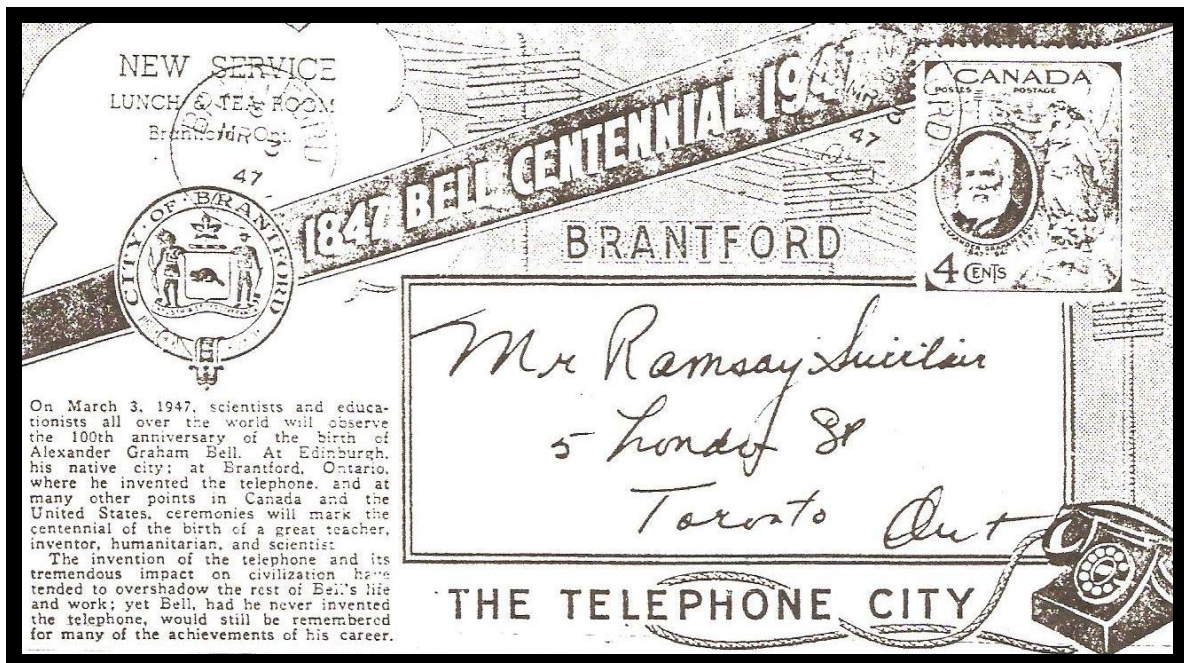 NEW SERVICE
LUNCH & TEA ROOM
Brantford Ont.
47
1847 BELL CENTENNIAL 194
47
CANADA
POSTES POSTAGE
ALEXANDER GRAHAM BELL
4 CENTS
CITY OF BRANTFORD
BRANTFORD
Mr Ramsay Sinclair
5 London St
Toronto Ont
On March 3, 1947, scientists and educa-
tionists all over the world will observe
the 100th anniversary of the birth of
Alexander Graham Bell. At Edinburgh,
his native city; at Brantford, Ontario,
where he invented the telephone, and at
many other points in Canada and the
United States, ceremonies will mark the
centennial of the birth of a great teacher,
inventor, humanitarian, and scientist
The invention of the telephone and its
tremendous impact on civilization have
tended to overshadow the rest of Bell's life
and work; yet Bell, had he never invented
the telephone, would still be remembered
for many of the achievements of his career.
THE TELEPHONE CITY